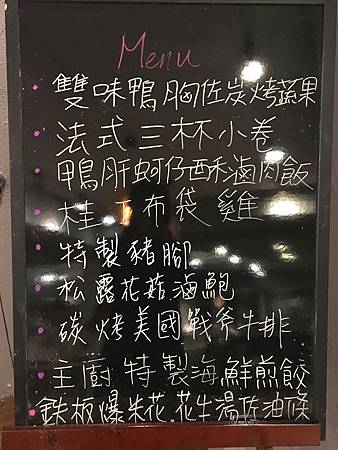 Menu
雙味鴨胸佐炭烤蔬果
法式三杯小卷
鴨肝蚵仔酥滷肉飯
桂丁布袋雞
特製豬腳
松露花菇滷鮑
碳烤美國戰斧牛排
主廚特製海鮮煎餃
鉄板爆米花 花生湯佐油條